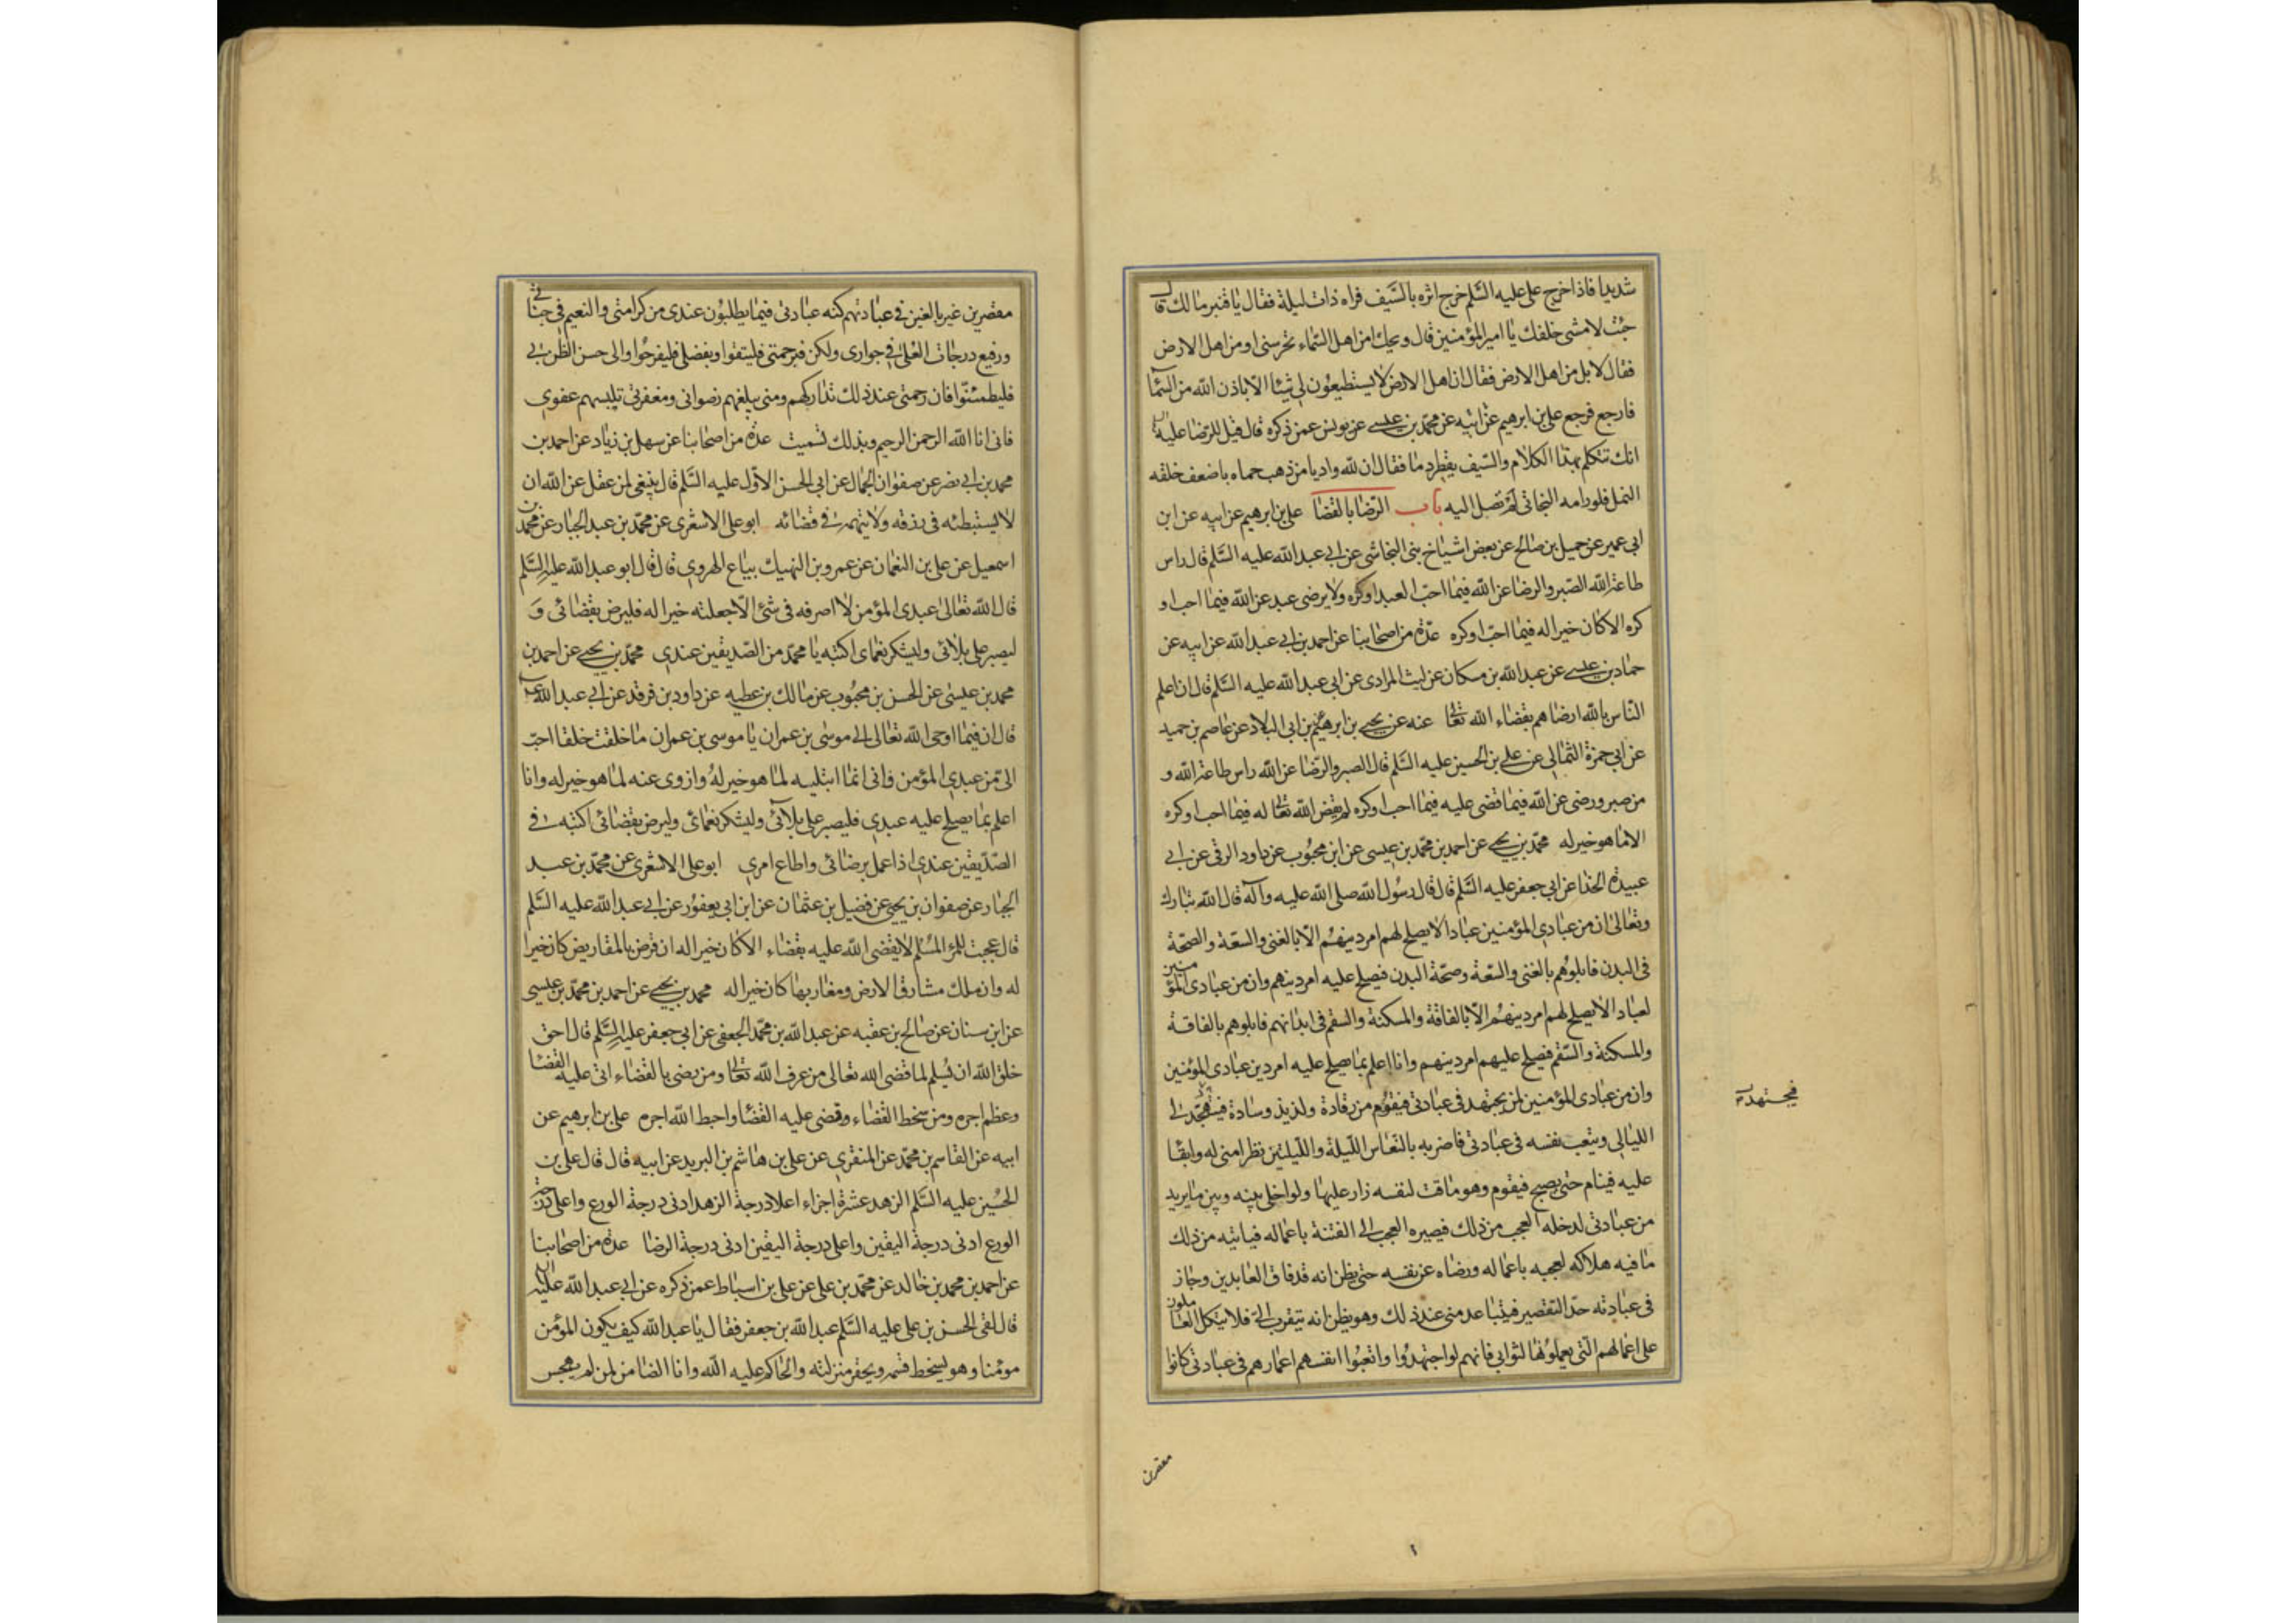 شديدا فاذا خرج على عليه السَّلم خرج اثره بالسَّيف فراه ذات ليلة فقال يا قنبر مالك قال
جئت لامشى خلفك يا امير المؤمنين قال ويحك امن اهل السماء تحرسنى او من اهل الارض
فقال لا بل من اهل الارض فقال ان اهل الارض لا يستطيعون لى شيئا الّا باذن الله من السمآ
فارجع فرجع على بن ابرهيم عن ابيه عن محمّد بن عيسى عن يونس عمن ذكره قال قيل للرضا عليه
انك تتكلم بهذا الكلام والسّيف يقطر دما فقال ان لله واديا من ذهب حماه باضعف خلقه
النمل فلو رامه البخاتى لم تصل اليه باب الرّضا بالقضا على بن ابرهيم عن ابيه عن ابن
ابى عمير عن جميل بن صالح عن بعض اشياخ بنى النجاشى عن ابى عبد الله عليه السَّلم قال راس
طاعة الله الصّبر والرضا عن الله فيما احبّ العبد او كره ولا يرضى عبد عن الله فيما احب او
كره الا كان خيرا له فيما احبّ او كره عدّة من اصحابنا عن احمد بن ابى عبد الله عن ابيه عن
حماد بن عيسى عن عبد الله بن مسكان عن ليث المرادى عن ابى عبد الله عليه السَّلم قال ان اعلم
النّاس بالله ارضاهم بقضاء الله تعالى عنه عن يحيى بن ابرهيم بن ابى البلاد عن عاصم بن حميد
عن ابى حمزة الثمالى عن على بن الحسين عليه السَّلم قال الصبر والرّضا عن الله راس طاعة الله و
من صبر ورضى عن الله فيما قضى عليه فيما احب او كره لم يقض الله تعالى له فيما احب او كره
الا ما هو خير له محمّد بن يحيى عن احمد بن محمّد بن عيسى عن ابن محبوب عن داود الرقى عن ابى
عبيدة الحذا عن ابى جعفر عليه السَّلم قال قال رسول الله صلى الله عليه وآله قال الله تبارك
وتعالى ان من عبادى المؤمنين عبادا لا يصلح لهم امر دينهم الّا بالغنى والسّعة والصحّة
فى البدن فابلوهم بالغنى والسّعة وصحّة البدن فيصلح عليه امر دينهم وان من عبادى المؤمنين
لعبادا لا يصلح لهم امر دينهم الّا بالفاقة والمسكنة والسقم فى ابدانهم فابلوهم بالفاقة
والمسكنة والسّقم فيصلح عليهم امر دينهم وانا اعلم بما يصلح عليه امر دين عبادى المؤمنين
وان من عبادى المؤمنين لمن يجتهد فى عبادتى فيقوم من رقادة ولذيذ وسادة فيتهجّد لى
فيجتهد
الليالى ويتعب نفسه فى عبادتى فاضربه بالنعاس اللّيلة واللّيلتين نظرا منى له وابقآ
عليه فينام حتى يصبح فيقوم وهو ماقت لنفسه زار عليها ولو اخلى بينه وبين ما يريد
من عبادتى لدخله العجب من ذلك فيصيره العجب الى الفتنة باعماله فياتيه من ذلك
ما فيه هلاكه لعجبه باعماله ورضاه عن نفسه حتى يظن انه قد فاق العابدين وجاز
فى عبادته حدّ التقصير فيتباعد منى عند ذلك وهو يظن انه يتقرب الىّ فلا يتكل العاملون
على اعمالهم الّتى يعملونها لثوابى فانهم لو اجتهدوا واتعبوا انفسهم اعمارهم فى عبادتى كانوا
مقصرين
مقصرين غير بالغين فى عبادتهم كنه عبادتى فيما يطلبون عندى من كرامتى والنعيم فى جناتى
ورفيع درجات العلى فى جوارى ولكن فبرحمتى فليثقوا وبفضلى فليفرحوا والى حسن الظن بى
فليطمئنّوا فان رحمتى عند ذلك تداركهم ومنى يبلغهم رضوانى ومغفرتى تلبسهم عفوى
فانى انا الله الرحمن الرحيم وبذلك تسميت عدّة من اصحابنا عن سهل بن زياد عن احمد بن
محمد بن ابى نصر عن صفوان الجمال عن ابى الحسن الاوّل عليه السَّلم قال ينبغى لمن عقل عن الله ان
لا يستبطئه فى رزقه ولا يتهمه فى قضائه ابو على الاشعرى عن محمّد بن عبد الجبار عن محمّد بن
اسمعيل عن على بن النعمان عن عمرو بن النهيك بياع الهروى قال قال ابو عبد الله عليه السَّلم
قال الله تعالى عبدى المؤمن لا اصرفه فى شئ الّا جعلته خيرا له فليرض بقضائى وَ
ليصبر على بلائى وليشكر نعماى اكتبه يا محمّد من الصّديقين عندى محمّد بن يحيى عن احمد بن
محمد بن عيسى عن الحسن بن محبوب عن مالك بن عطيه عن داود بن فرقد عن ابى عبد الله ع
قال ان فيما اوحى الله تعالى الى موسى بن عمران يا موسى بن عمران ما خلقت خلقا احبّ
الىّ من عبدى المؤمن وانى انما ابتليه لما هو خير له وازوى عنه لما هو خير له وانا
اعلم بما يصلح عليه عبدى فليصبر على بلآئى وليشكر نعمائى وليرض بقضائى اكتبه فى
الصّدّيقين عندى اذا عمل برضائى واطاع امرى ابو على الاشعرى عن محمّد بن عبد
الجبار عن صفوان بن يحيى عن فضيل بن عثمان عن ابن ابى يعفور عن ابى عبد الله عليه السَّلم
قال عجبت للمرء المسُلم لا يقضى الله عليه بقضاء الا كان خيرا له ان قرض بالمقاريض كان خيرا
له وان ملك مشارق الارض ومغاربها كان خيرا له محمد بن يحيى عن احمد بن محمّد بن عيسى
عن ابن سنان عن صالح بن عقبه عن عبد الله بن محمّد الجعفى عن ابى جعفر عليه السَّلم قال احق
خلق الله ان يُسلم لما قضى الله تعالى من عرف الله تعالى ومن رضى بالقضاء اتى عليه القضا
وعظم اجره ومن سخط القضاء وقضى عليه القضا واحبط الله اجره على بن ابرهيم عن
ابيه عن القاسم بن محمّد عن المنقرى عن على بن هاشم بن البريد عن ابيه قال قال على بن
الحسُين عليه السَّلم الزهد عشرة اجزاء اعلا درجة الزهد ادنى درجة الورع واعلى درجة
الورع ادنى درجة اليقين واعلى درجة اليقين ادنى درجة الرضا عدة من اصحابنا
عن احمد بن محمد بن خالد عن محمّد بن على عن على بن اسباط عمن ذكره عن ابى عبد الله عليه
قال لقى الحسن بن على عليه السَّلم عبد الله بن جعفر فقال يا عبد الله كيف يكون المؤمن
مومنا وهو يسخط قسمه ويحقر منزلته والحاكم عليه الله وانا الضامن لمن لم يهجس